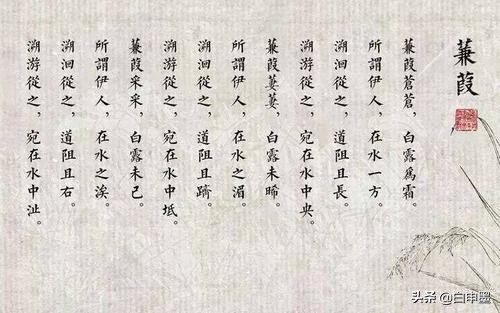 蒹葭
蒹葭蒼蒼，白露爲霜。
所謂伊人，在水一方。
溯洄從之，道阻且長。
溯游從之，宛在水中央。
蒹葭萋萋，白露未晞。
所謂伊人，在水之湄。
溯洄從之，道阻且躋。
溯游從之，宛在水中坻。
蒹葭采采，白露未已。
所謂伊人，在水之涘。
溯洄從之，道阻且右。
溯游從之，宛在水中沚。
头条 @白申墨